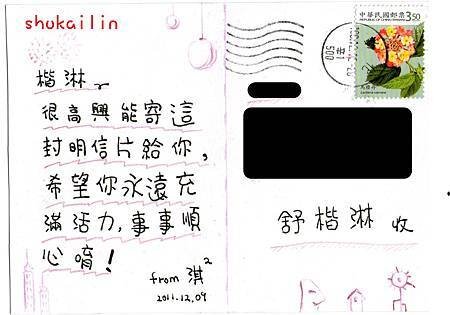 shukailin
楷淋~
很高興能寄這
封明信片給你,
希望你永遠充
滿活力,事事順
心唷!
from 淇²
2011.12.09
中華民國郵票
3.50
REPUBLIC OF CHINA (TAIWAN)
馬纓丹
舒楷淋 收